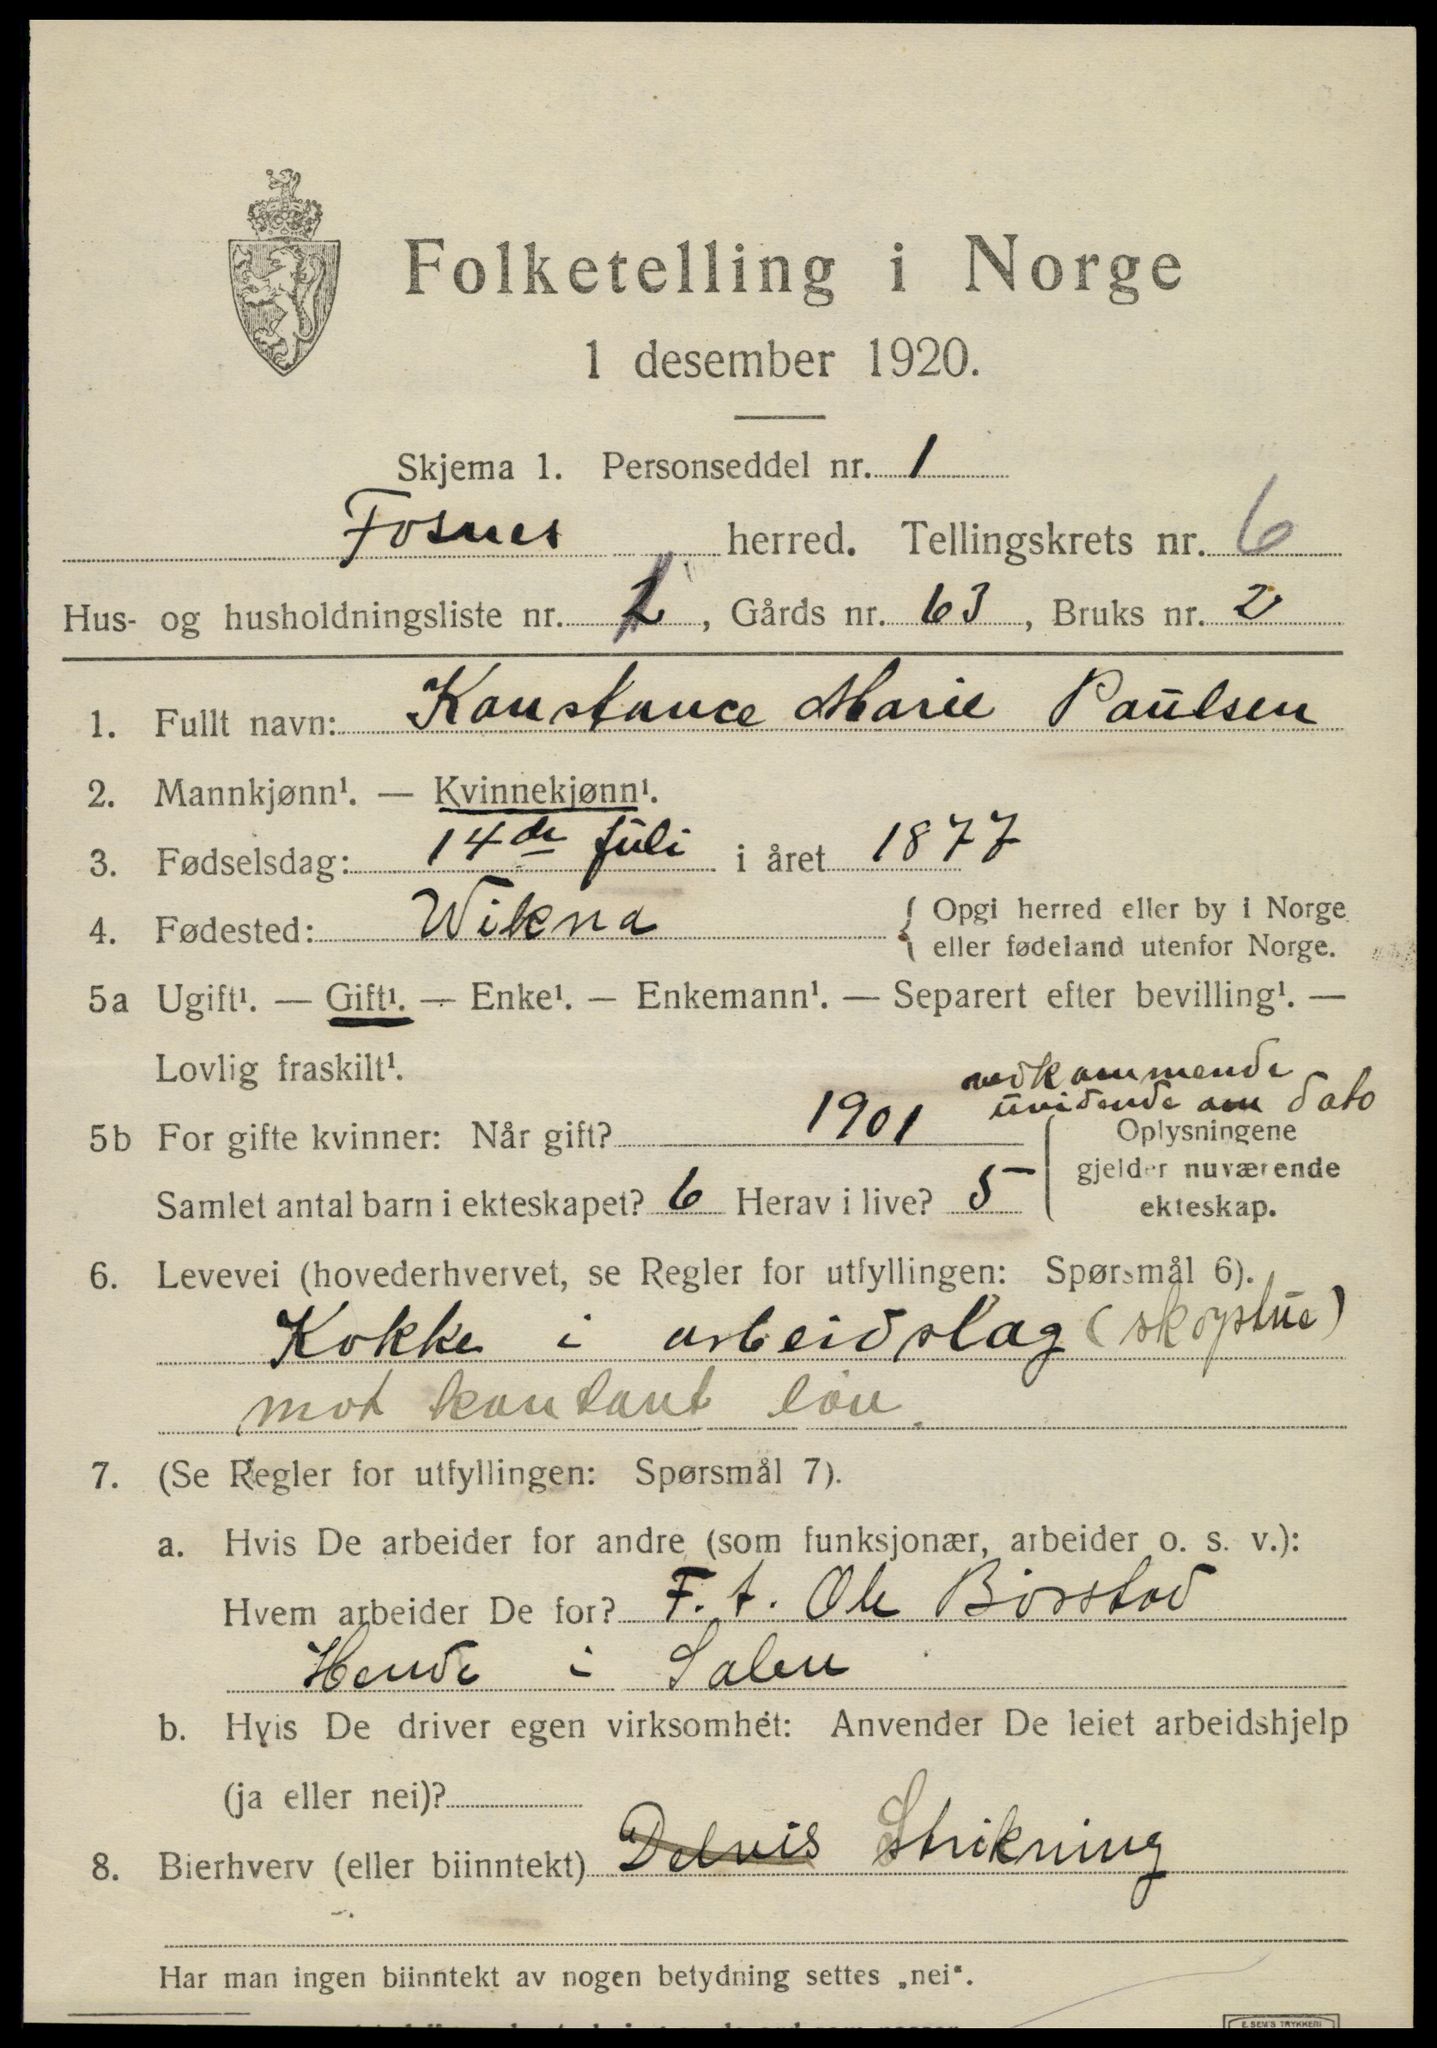 Folketelling i Norge
1 desember 1920.
Skjema 1. Personseddel nr. 1
Fosnes herred. Tellingskrets nr. 6
Hus- og husholdningsliste nr. 2, Gårds nr. 63, Bruks nr. 2
1. Fullt navn: Konstance Marie Paulsen
2. Mannkjønn¹. — Kvinnekjønn¹.
3. Fødselsdag: 14de juli i året 1877
4. Fødested: Wikna { Opgi herred eller by i Norge
eller fødeland utenfor Norge.
5a Ugift¹. — Gift¹. — Enke¹. — Enkemann¹. — Separert efter bevilling¹. —
Lovlig fraskilt¹.
vedkommende
uvidende om dato
5b For gifte kvinner: Når gift? 1901
Samlet antal barn i ekteskapet? 6 Herav i live? 5
Oplysningene
gjelder nuværende
ekteskap.
6. Levevei (hovederhvervet, se Regler for utfyllingen: Spørsmål 6).
Kokke i arbeidslag (skogstue)
mot kontant løn.
7. (Se Regler for utfyllingen: Spørsmål 7).
a. Hvis De arbeider for andre (som funksjonær, arbeider o. s. v.):
Hvem arbeider De for? F. t. Ole Børstad
i Salen
b. Hvis De driver egen virksomhet: Anvender De leiet arbeidshjelp
(ja eller nei)?
8. Bierhverv (eller biinntekt) Delvis Strikning
Har man ingen biinntekt av nogen betydning settes „nei“.
E. SEM'S TRYKKERI